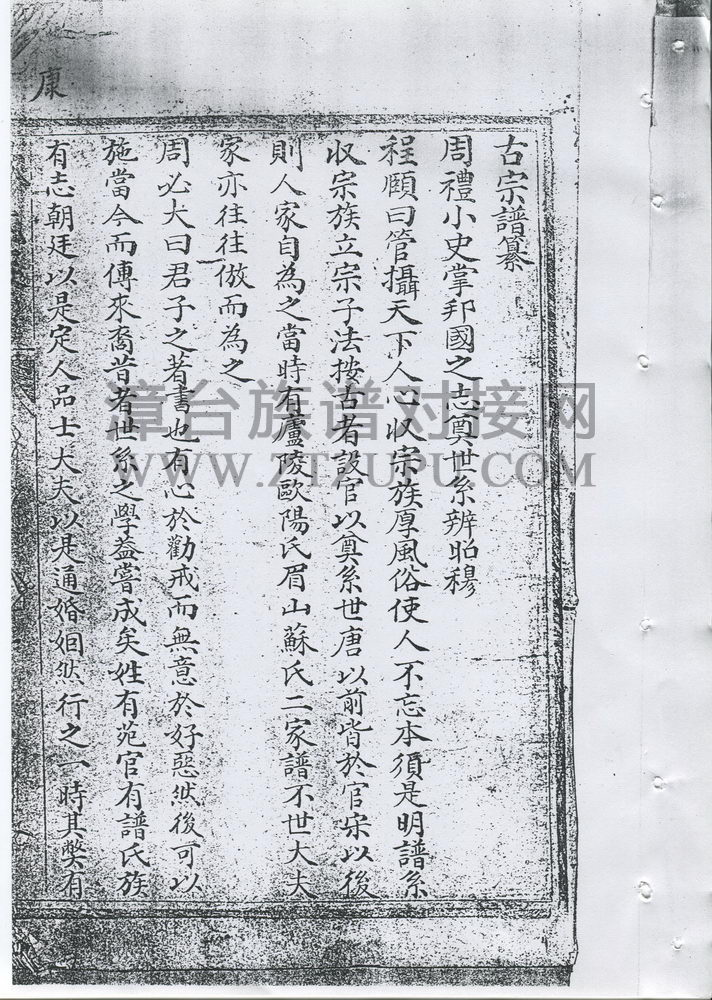 古宗譜纂
周禮小史掌邦國之志奠世系辨昭穆
程頤曰管攝天下人心収宗族厚風俗使人不忘本須是明譜系
収宗族立宗子法按古者設官以奠系世唐以前皆於官宋以後
則人家自為之當時有廬陵歐陽氏眉山蘇氏二家譜不世大夫
家亦往往倣而為之
周必大曰君子之著書也有心於勸戒而無意於好惡然後可以
施當今而傳來裔昔者世系之學蓋嘗成矣姓有苑官有譜氏族
有志朝廷以是定人品士大夫以是通婚姻然行之一時其獘有
康
漳台族谱对接网
WWW.ZTZUPU.COM